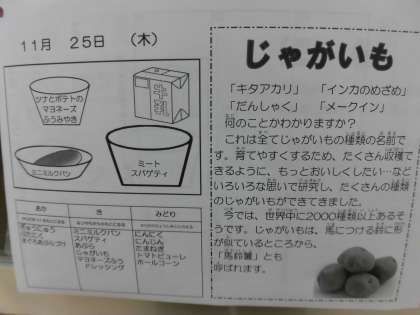 11月 25日 (木)
ツナとポテトの
マヨネーズ
ふうみやき
ミニミルクパン
ミート
スパゲティ
あか
き
みどり
ぎゅうにゅう
ぶたにく
まぐろあぶらづけ
ミニミルクパン
スパゲティ
あぶら
じゃがいも
マヨネーズふう
ドレッシング
にんにく
にんじん
たまねぎ
トマトピューレ
ホールコーン
じゃがいも
「キタアカリ」 「インカのめざめ」
「だんしゃく」 「メークイン」
何のことかわかりますか?
これは全てじゃがいもの種類の名前で
す。育てやすくするため、たくさん収穫で
きるように、もっとおいしくしたい…など
いろいろな思いで研究し、たくさんの種類
のじゃがいもができてきました。
今では、世界中に2000種類以上あるそ
うです。じゃがいもは、馬につける鈴に形
が似ているところから、
「馬鈴薯」とも
呼ばれます。